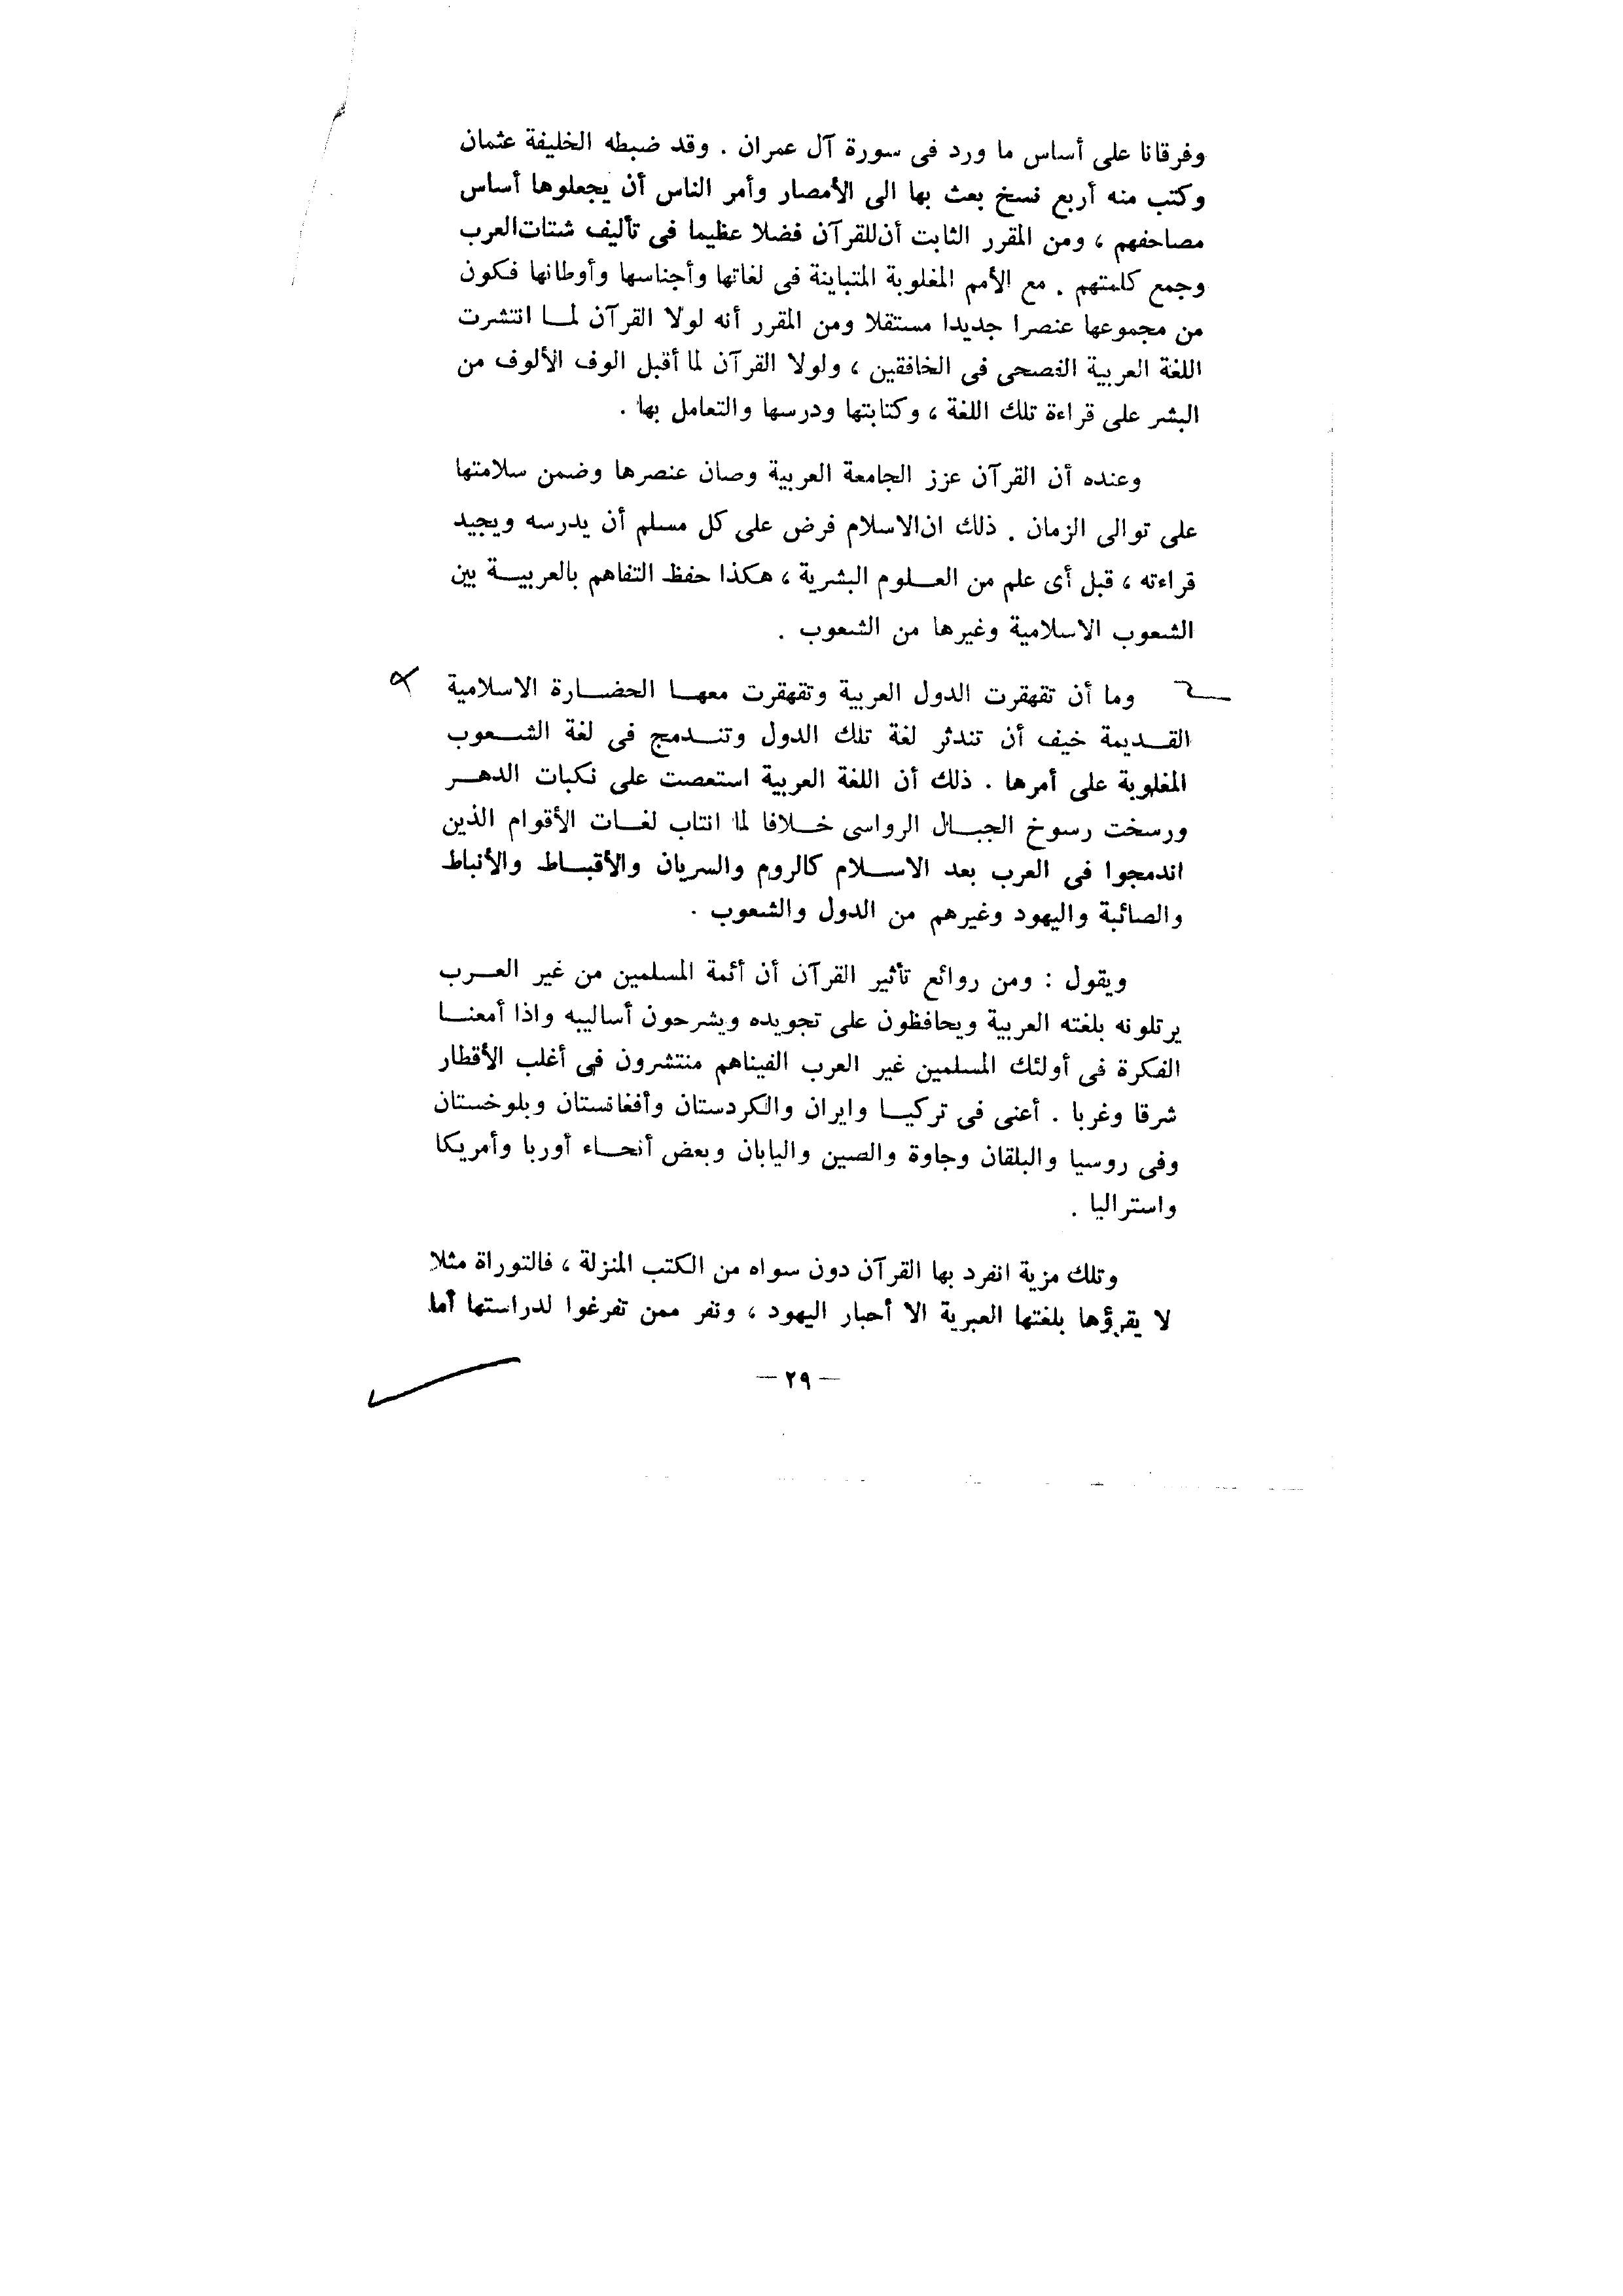 وفرقانا على أساس ما ورد فى سورة آل عمران . وقد ضبطه الخليفة عثمان
وكتب منه أربع نسخ بعث بها الى الأمصار وأمر الناس أن يجعلوها أساس
مصاحفهم ، ومن المقرر الثابت أن للقرآن فضلا عظيما فى تأليف شتات العرب
وجمع كلمتهم . مع الأمم المغلوبة المتباينة فى لغاتها وأجناسها وأوطانها فكون
من مجموعها عنصرا جديدا مستقلا ومن المقرر أنه لولا القرآن لما انتشرت
اللغة العربية الفصحى فى الخافقين ، ولولا القرآن لما أقبل الوف الألوف من
البشر على قراءة تلك اللغة ، وكتابتها ودرسها والتعامل بها .
وعنده أن القرآن عزز الجامعة العربية وصان عنصرها وضمن سلامتها
على توالى الزمان . ذلك ان الاسلام فرض على كل مسلم أن يدرسه ويجيد
قراءته ، قبل أى علم من العلوم البشرية ، هكذا حفظ التفاهم بالعربية بين
الشعوب الاسلامية وغيرها من الشعوب .
وما أن تقهقرت الدول العربية وتقهقرت معها الحضارة الاسلامية
القديمة خيف أن تندثر لغة تلك الدول وتندمج فى لغة الشعوب
المغلوبة على أمرها . ذلك أن اللغة العربية استعصت على نكبات الدهر
ورسخت رسوخ الجبال الرواسى خلافا لما انتاب لغات الأقوام الذين
اندمجوا فى العرب بعد الاسلام كالروم والسريان والأقباط والأنباط
والصائبة واليهود وغيرهم من الدول والشعوب .
ويقول : ومن روائع تأثير القرآن أن أئمة المسلمين من غير العرب
يرتلونه بلغته العربية ويحافظون على تجويده ويشرحون أساليبه واذا أمعنا
الفكرة فى أولئك المسلمين غير العرب الفيناهم منتشرون فى أغلب الأقطار
شرقا وغربا . أعنى فى تركيا وايران والكردستان وأفغانستان وبلوخستان
وفى روسيا والبلقان وجاوة والصين واليابان وبعض أنحاء أوربا وأمريكا
واستراليا .
وتلك مزية انفرد بها القرآن دون سواه من الكتب المنزلة ، فالتوراة مثلا
لا يقرؤها بلغتها العبرية الا أحبار اليهود ، ونفر ممن تفرغوا لدراستها أما
— ٢٩ —